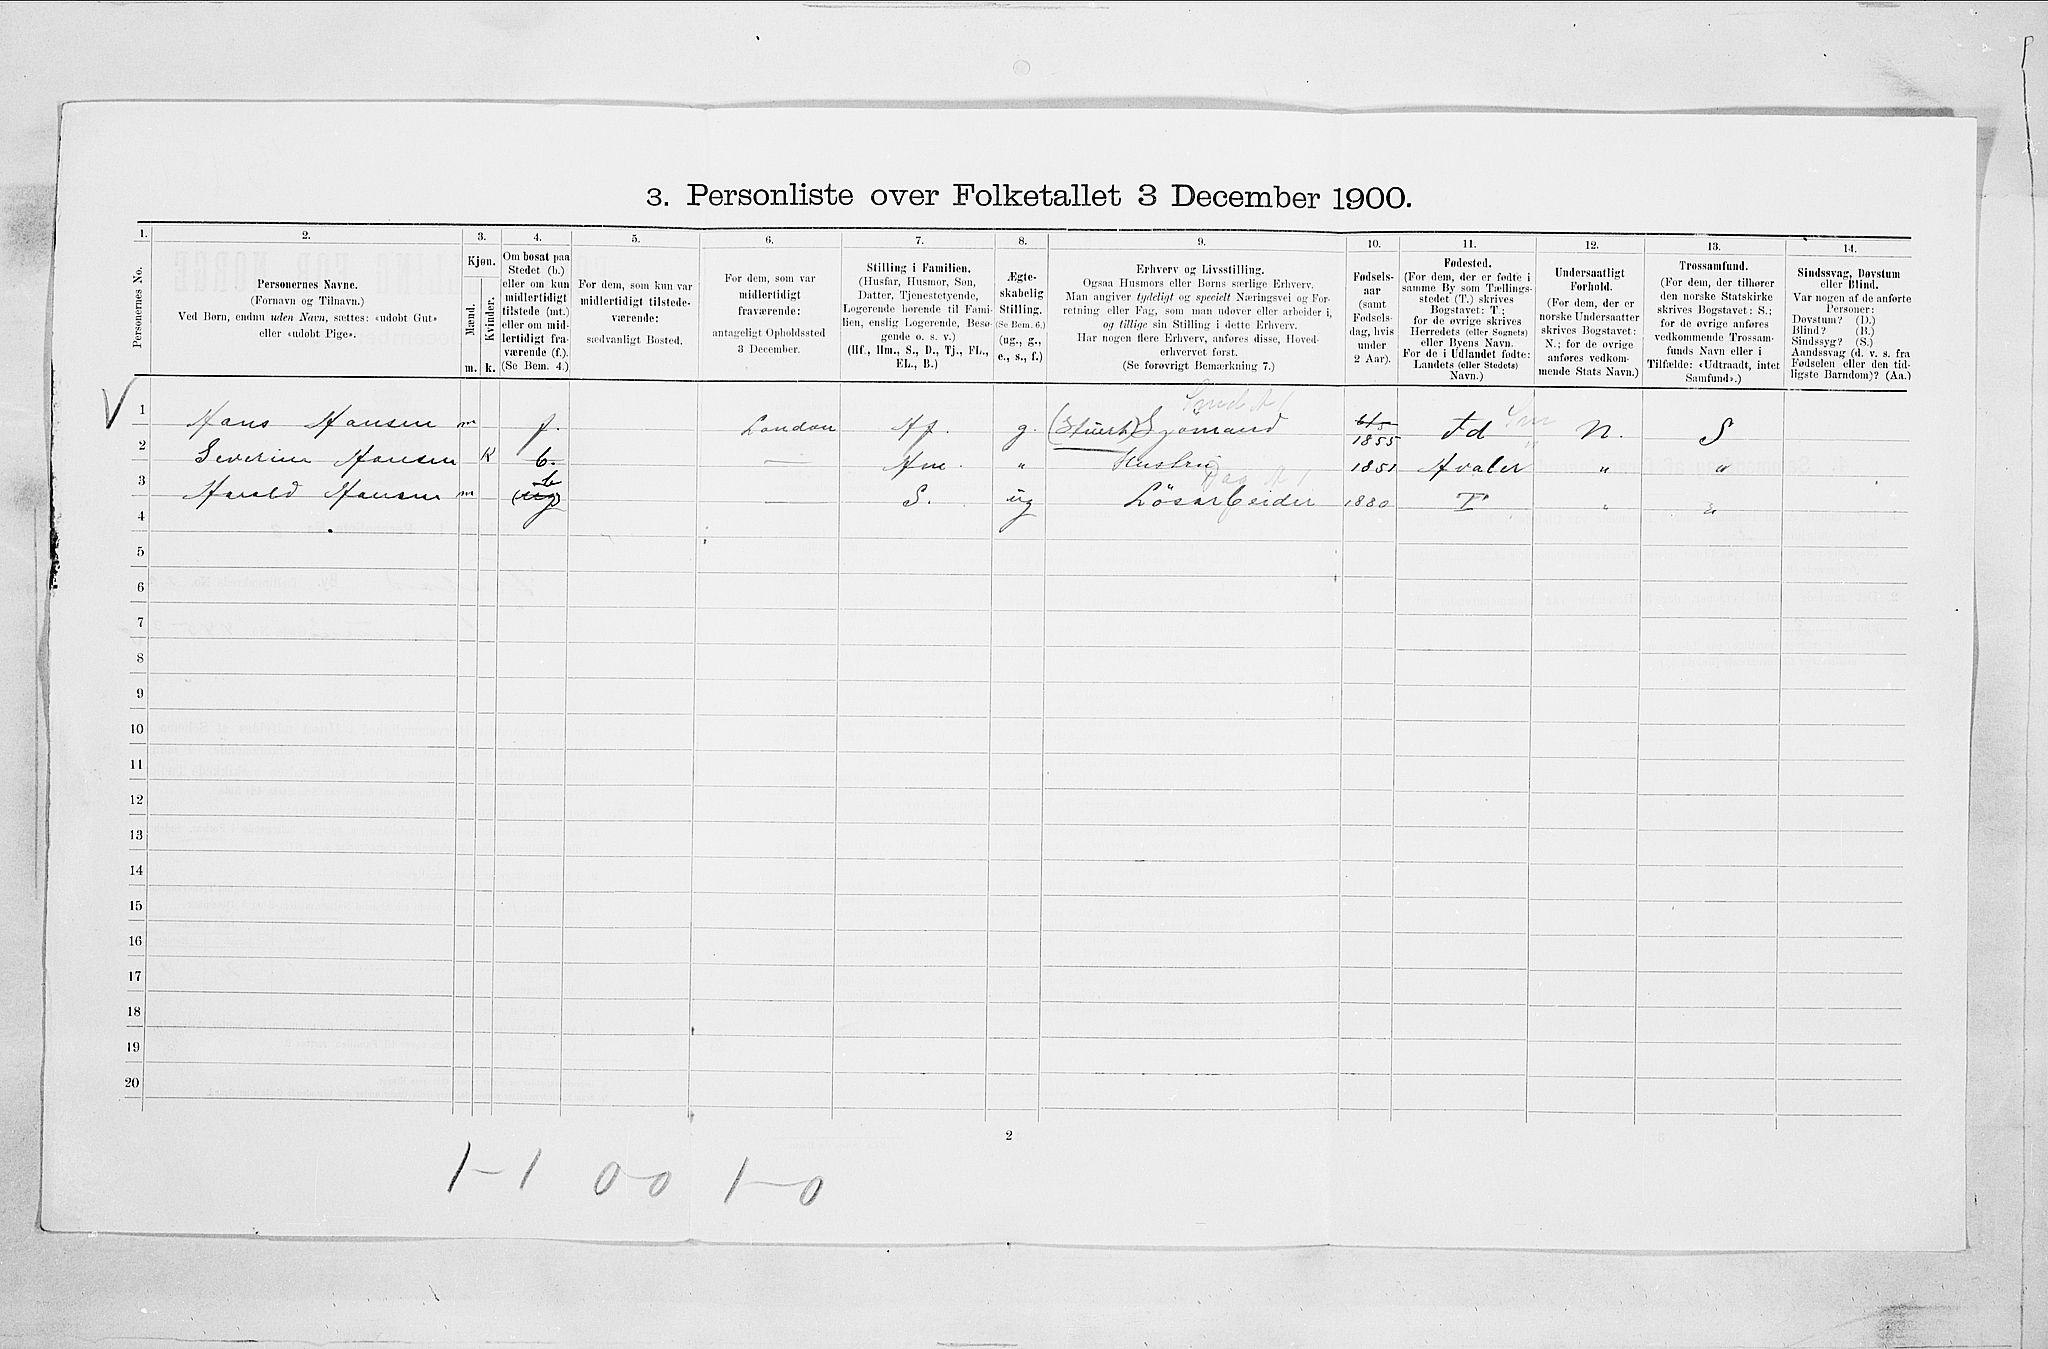 3. Personliste over Folketallet 3 December 1900.
1. 2. 3. 4. 5. 6. 7. 8. 9. 10. 11. 12. 13. 14.
Personernes No.
Personernes Navne.
(Fornavn og Tilnavn.)
Ved Børn, endnu uden Navn, sættes: «udøbt Gut»
eller «udøbt Pige».
Kjøn.
Mænd.
Kvinder.
m. k.
Om bosat paa
Stedet (b.)
eller om kun
midlertidigt
tilstede (mt.)
eller om mid-
lertidigt fra-
værende (f.).
(Se Bem. 4.)
For dem, som kun var
midlertidigt tilstede-
værende:
sædvanligt Bosted.
For dem, som var
midlertidigt
fraværende:
antageligt Opholdssted
3 December.
Stilling i Familien.
(Husfar, Husmor, Søn,
Datter, Tjenestetyende,
Logerende hørende til Fami-
lien, enslig Logerende, Besø-
gende o. s. v.)
(Hf., Hm., S., D., Tj., FL.,
EL., B.)
Ægte-
skabelig
Stilling.
(Se Bem. 6.)
(ug., g.,
e., s., f.)
Erhverv og Livsstilling.
Ogsaa Husmors eller Børns særlige Erhverv.
Man angiver tydeligt og specielt Næringsvei og For-
retning eller Fag, som man udøver eller arbeider i,
og tillige sin Stilling i dette Erhverv.
Har nogen flere Erhverv, anføres disse, Hoved-
erhvervet først.
(Se forøvrigt Bemærkning 7.)
Fødsels-
aar
(samt
Fødsels-
dag, hvis
under
2 Aar).
Fødested.
(For dem, der er fødte i
samme By som Tællings-
stedet (T.) skrives
Bogstavet: T.;
for de øvrige skrives
Herredets (eller Sognets)
eller Byens Navn.
For de i Udlandet fødte:
Landets (eller Stedets)
Navn.)
Undersaatligt
Forhold.
(For dem, der er
norske Undersaatter
skrives Bogstavet:
N.; for de øvrige
anføres vedkom-
mende Stats Navn.)
Trossamfund.
(For dem, der tilhører
den norske Statskirke
skrives Bogstavet: S.;
for de øvrige anføres
vedkommende Trossam-
funds Navn eller i
Tilfælde: «Udtraadt, intet
Samfund».)
Sindssvag, Døvstum
eller Blind.
Var nogen af de anførte
Personer:
Døvstum? (D.)
Blind? (B.)
Sindssyg? (S.)
Aandssvag (d. v. s. fra
Fødselen eller den tid-
ligste Barndom)? (Aa.)
1 Hans Hansen m f. London Hf. g. (Stuert) Sjømand 1855 Fd N. S
2 Severine Hansen K b. — Hm. " Hustru 1851 Hvaler " "
3 Harald Hansen m b — S. ug Løsarbeider 1880 T " "
4
5
6
7
8
9
10
11
12
13
14
15
16
17
18
19
20
2
1-1 0-0 1-0